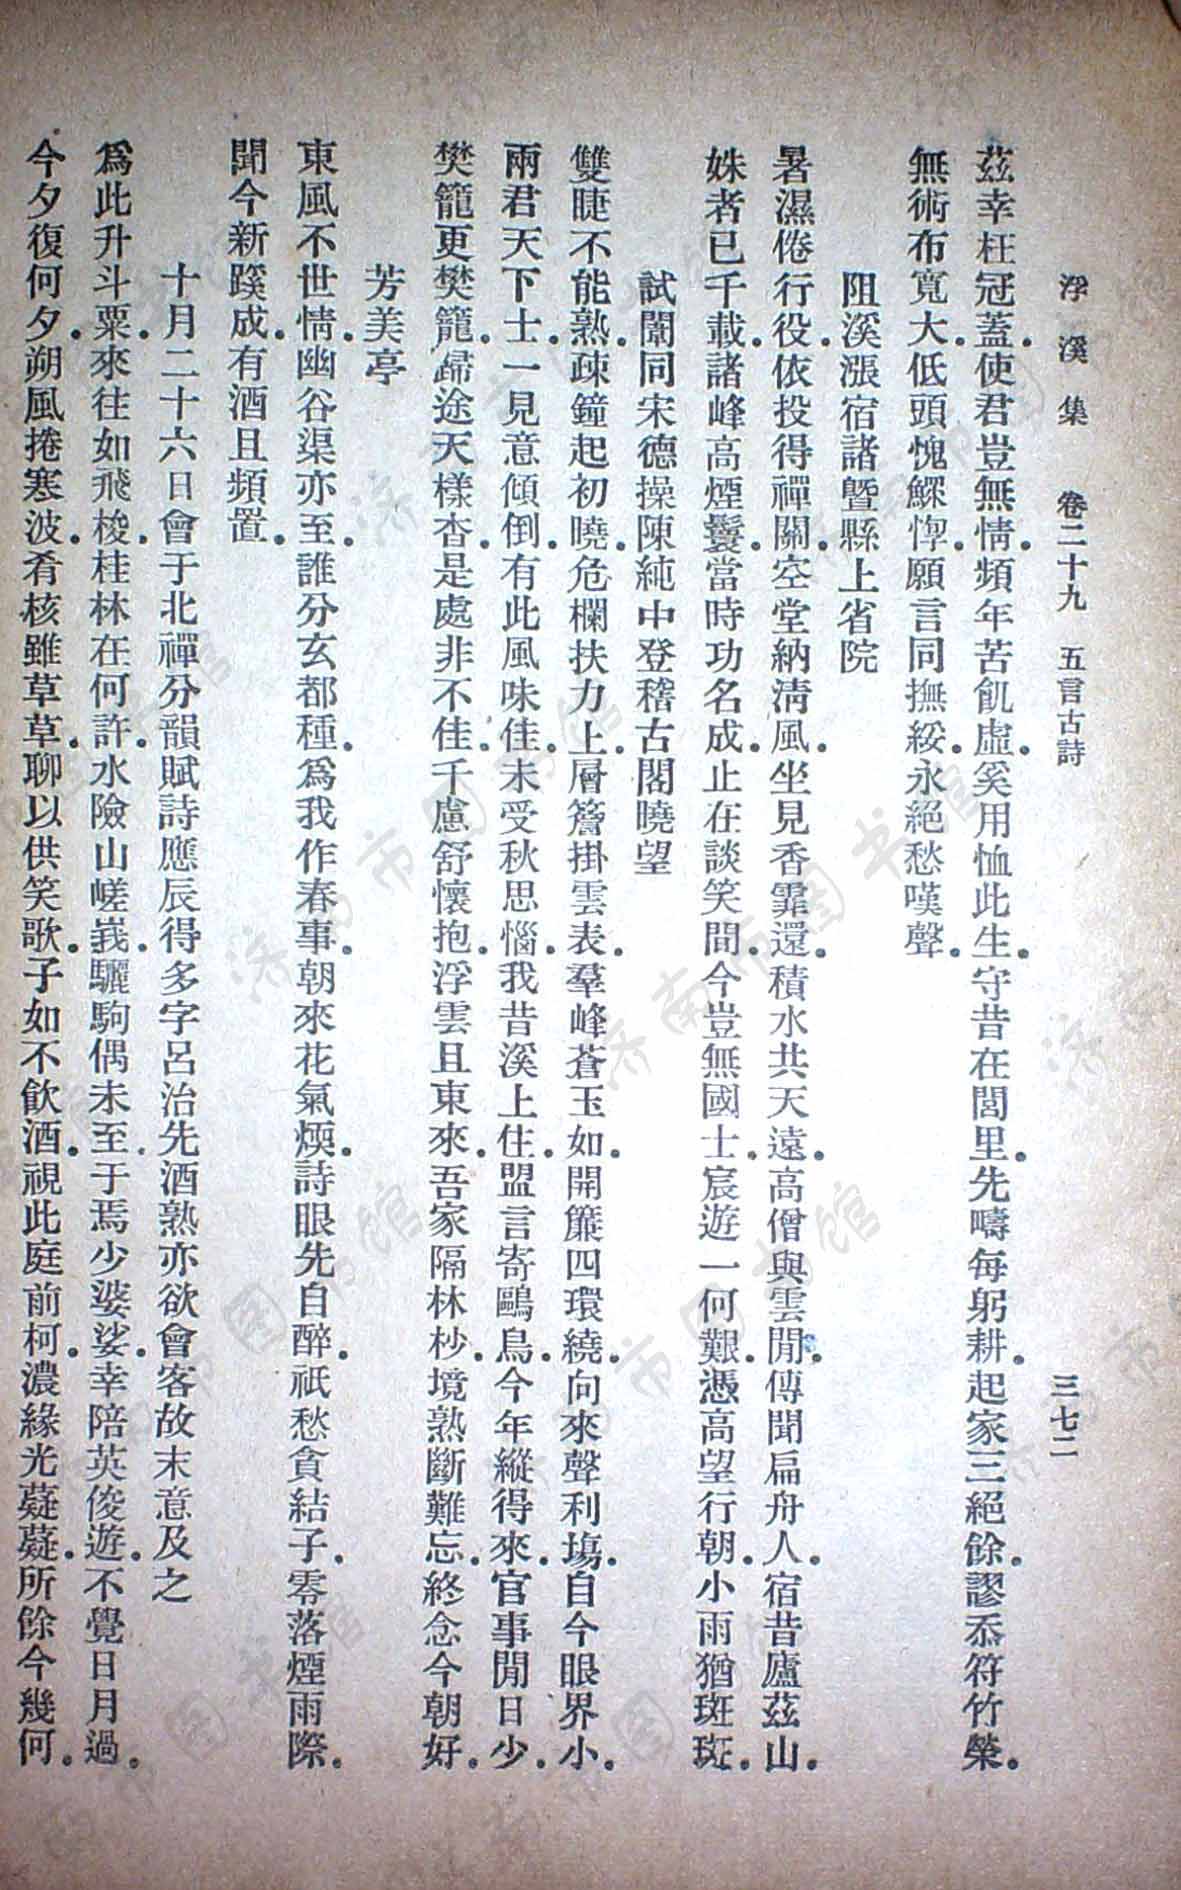 浮溪集 卷二十九 五言古詩 三七二
茲幸枉冠蓋使君豈無情頻年苦飢虛奚用恤此生守昔在閭里先疇每躬耕起家三絕餘謬忝符竹榮
無術布寬大低頭愧鰥惸願言同撫綏永絕愁嘆聲
阻溪漲宿諸暨縣上省院
暑濕倦行役依投得禪關空堂納清風坐見香霏還積水共天遠高僧與雲閒傳聞扁舟人宿昔廬茲山
姝者已千載諸峰高煙鬟當時功名成止在談笑間今豈無國士宸遊一何艱憑高望行朝小雨猶斑斑
試闈同宋德操陳純中登稽古閣曉望
雙睫不能熟疎鐘起初曉危欄扶力上層簷掛雲表羣峰蒼玉如開簾四環繞向來聲利塲自今眼界小
兩君天下士一見意傾倒有此風味佳未受秋思惱我昔溪上住盟言寄鷗鳥今年縱得來官事閒日少
樊籠更樊籠歸途天樣杳是處非不佳千慮舒懷抱浮雲且東來吾家隔林杪境熟斷難忘終念今朝好
芳美亭
東風不世情幽谷渠亦至誰分玄都種爲我作春事朝來花氣煗詩眼先自醉祇愁貪結子零落煙雨際
聞今新蹊成有酒且頻置
十月二十六日會于北禪分韻賦詩應辰得多字呂治先酒熟亦欲會客故末意及之
爲此升斗粟來往如飛梭桂林在何許水險山嵯峩驪駒偶未至于焉少婆娑幸陪英俊遊不覺日月過
今夕復何夕朔風捲寒波肴核雖草草聊以供笑歌子如不飲酒視此庭前柯濃緣光薿薿所餘今幾何